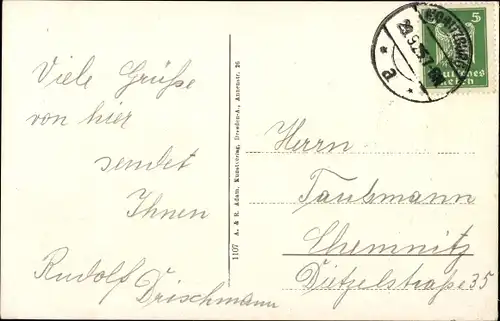 Viele Grüße
von hier
sendet
Ihnen
Rudolf
Drischmann
1107 A. & R. Adam, Kunstverlag, Dresden-A., Annenstr. 26
5
Deutsches
a
Herrn
Taubmann
Chemnitz
Dietzelstraße 35